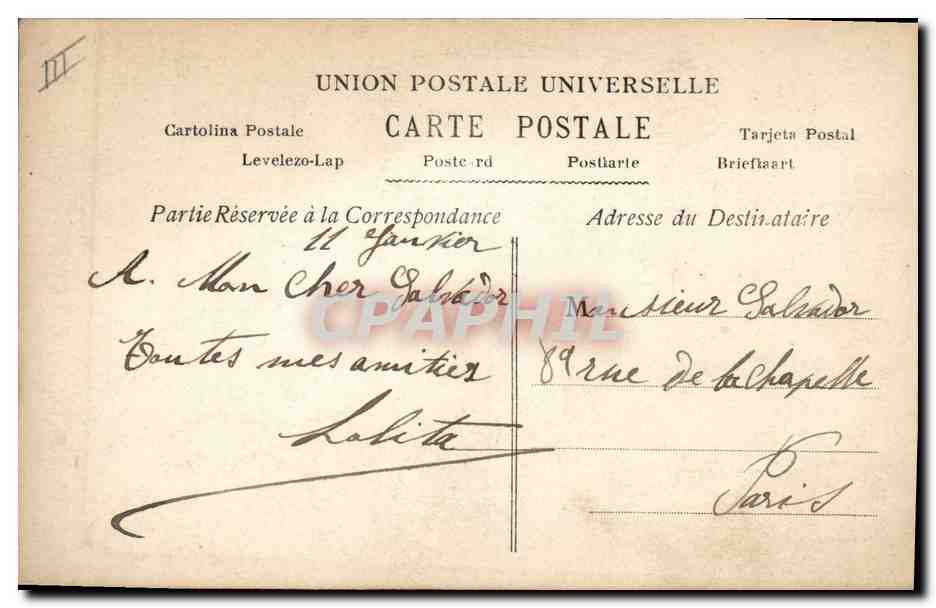 III
UNION POSTALE UNIVERSELLE
CARTE POSTALE
Cartolina Postale
Tarjeta Postal
Levelezo-Lap
Postcard
Postkarte
Briefkaart
Partie Réservée à la Correspondance
11 Janvier
A. Mon Cher Salvador
Toutes mes amitiés
Lolita
Adresse du Destinataire
Monsieur Salvador
89 rue de la Chapelle
Paris
CPAPHIL